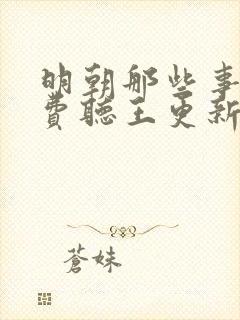 明朝那些事
費聽王更新
蒼妹